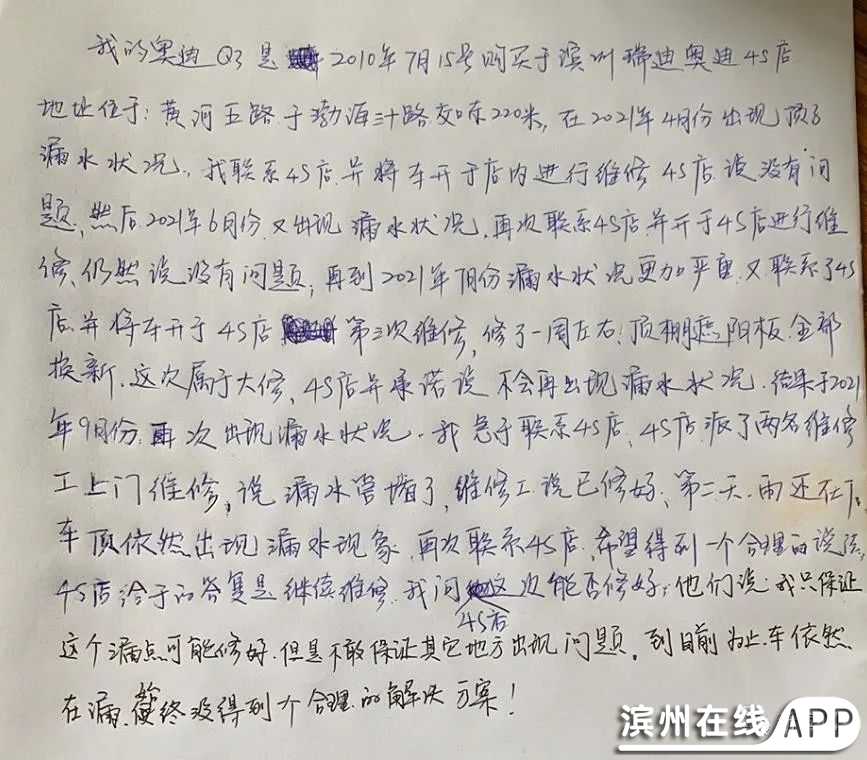 我的奥迪Q3是2010年7月15号购买于滨州瑞迪奥迪4S店
地址位于:黄河五路于渤海三十路交叉口东220米,在2021年4月份出现顶部
漏水状况,我联系4S店并将车开于店内进行维修4S店说没有问
题,然后2021年6月份又出现漏水状况,再次联系4S店并开于4S店进行维
修,仍然说没有问题,再到2021年7月份漏水状况更加严重又联系了4S
店并将车开于4S店第三次维修,修了一周左右,顶棚遮阳板全部
换新,这次属于大修,4S店并承诺说不会再出现漏水状况,结果于2021
年9月份再次出现漏水状况.我急于联系4S店,4S店派了两名维修
工上门维修,说漏水管堵了,维修工说已修好,第二天雨还在下
车顶依然出现漏水现象,再次联系4S店,希望得到一个合理的说法,
4S店给于的答复是继续维修,我问4S店这次能否修好,他们说:我只保证
这个漏点可能修好,但是不敢保证其它地方出现问题,到目前为止车依然
在漏,始终没得到个合理的解决方案!
滨州在线APP